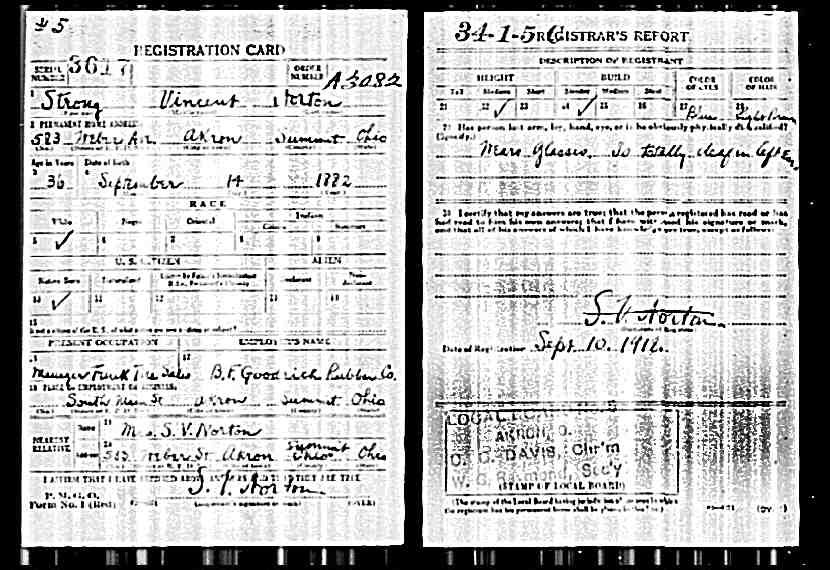 #5
REGISTRATION CARD
SERIAL NUMBER 3617
ORDER NUMBER A3082
1 Strong Vincent Norton
2 PERMANENT HOME ADDRESS:
583 Weber Av. Akron Summit Ohio
Age in Years Date of Birth
36 September 14 1882
RACE
White Negro Oriental Indian
5 ✓ 6 7 8 9
U. S. CITIZEN ALIEN
Native Born Naturalized
10 ✓ 11 12 13 14
15
PRESENT OCCUPATION EMPLOYER'S NAME
16 17
Manager Truck Tire Sales B. F. Goodrich Rubber Co.
18 PLACE OF EMPLOYMENT OR BUSINESS:
South Main St Akron Summit Ohio
NEAREST RELATIVE
Name 19 Mrs. S. V. Norton
Address 20 583 Weber St. Akron Summit Ohio
I AFFIRM THAT I HAVE VERIFIED ABOVE ANSWERS AND THAT THEY ARE TRUE
P. M. G. O.
Form No. 1 (Red)
S. V. Norton
34-1-5 REGISTRAR'S REPORT
DESCRIPTION OF REGISTRANT
HEIGHT BUILD COLOR OF EYES COLOR OF HAIR
Tall Medium Short Slender Medium Stout
21 22 ✓ 23 24 ✓ 25 26 27 Blue 28
29 Has person lost arm, leg, hand, eye, or is he obviously physically disqualified?
(Specify.)
Wears Glasses. Is totally deaf in left Ear
30 I certify that my answers are true; that the person registered has read or has
had read to him his own answers; that I have witnessed his signature or mark,
and that all of his answers of which I have knowledge are true, except as follows:
S. V. Norton
Date of Registration Sept. 10. 1918.
LOCAL BOARD
AKRON, O.
C. C. DAVIS, Chr'm
W. G. Raymond, Sec'y
(STAMP OF LOCAL BOARD)
(The stamp of the Local Board having jurisdiction of the area in which
the registrant has his permanent home shall be placed in this box.)